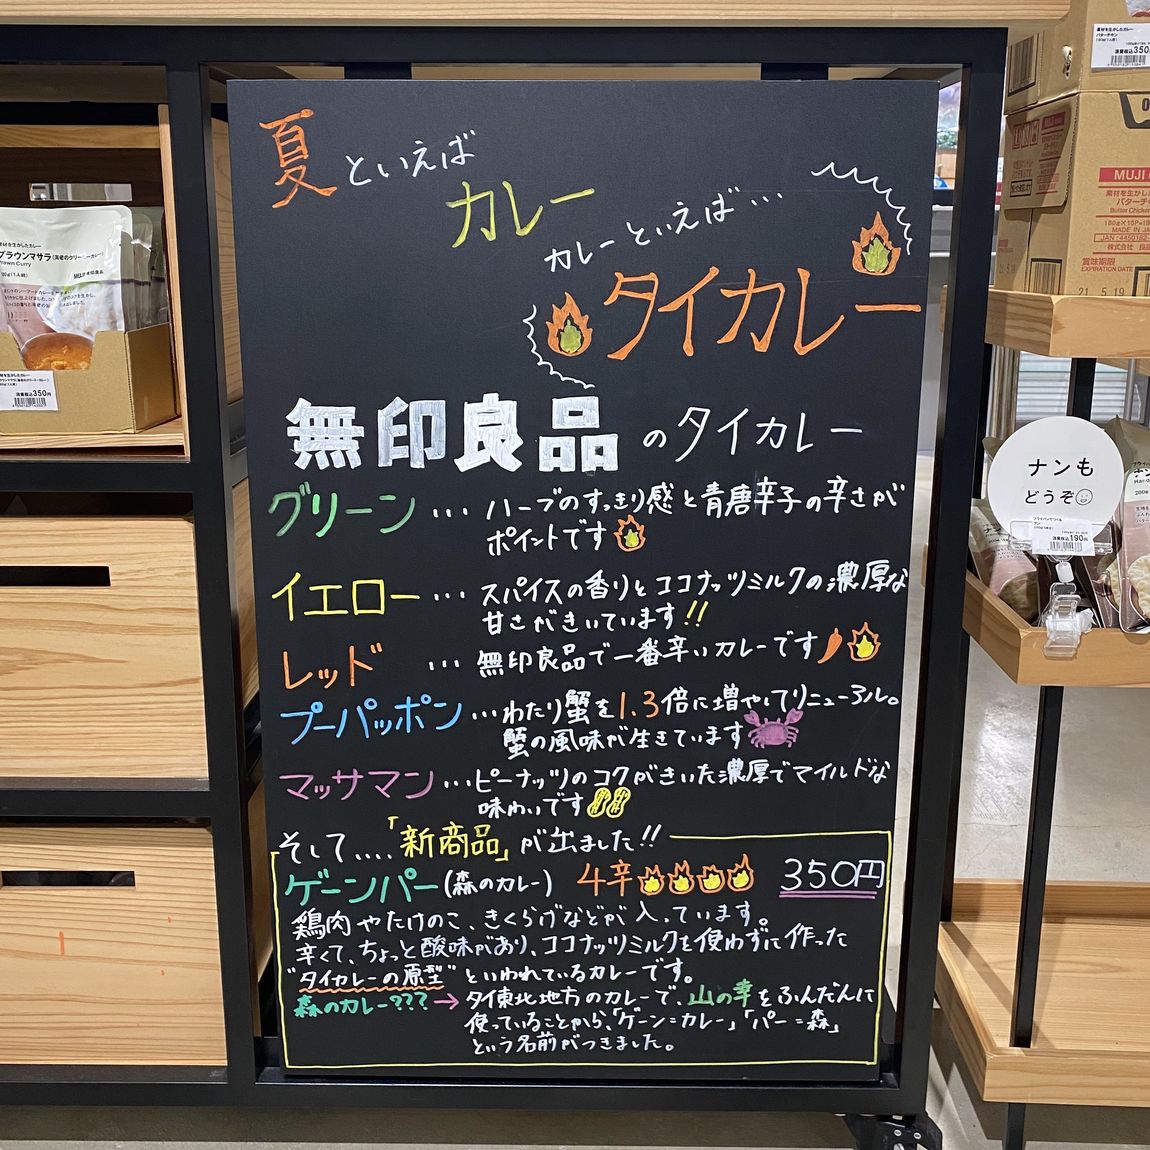 夏といえば
カレー
カレーといえば…
タイカレー
無印良品のタイカレー
グリーン … ハーブのすっきり感と青唐辛子の辛さが
ポイントです
イエロー … スパイスの香りとココナッツミルクの濃厚な
甘さがきいています!!
レッド … 無印良品で一番辛いカレーです
プーパッポン … わたり蟹を1.3倍に増やしてリニューアル。
蟹の風味が生きています
マッサマン … ピーナッツのコクがきいた濃厚でマイルドな
味わいです
そして….「新商品」が出ました!!
ゲーンパー(森のカレー) 4辛 350円
鶏肉やたけのこ、きくらげなどが入っています。
辛くて、ちょっと酸味があり、ココナッツミルクを使わずに作った
"タイカレーの原型"といわれているカレーです。
森のカレー???→タイ東北地方のカレーで、山の幸をふんだんに
使っていることから、「ゲーン=カレー」「パー=森」
という名前がつきました。
素材を生かしたカレー
プラウンマサラ(海老のクリーミーカレー)
消費税込350円
素材を生かしたカレー
バターチキン
消費税込350
MUJI
素材を生かした
バターチキ
Butter Chicken
MADE IN J
賞味期限
EXPIRATION DATE
21. 5. 19
ナンも
どうぞ
フライパンでつくる
ナン
消費税込190円